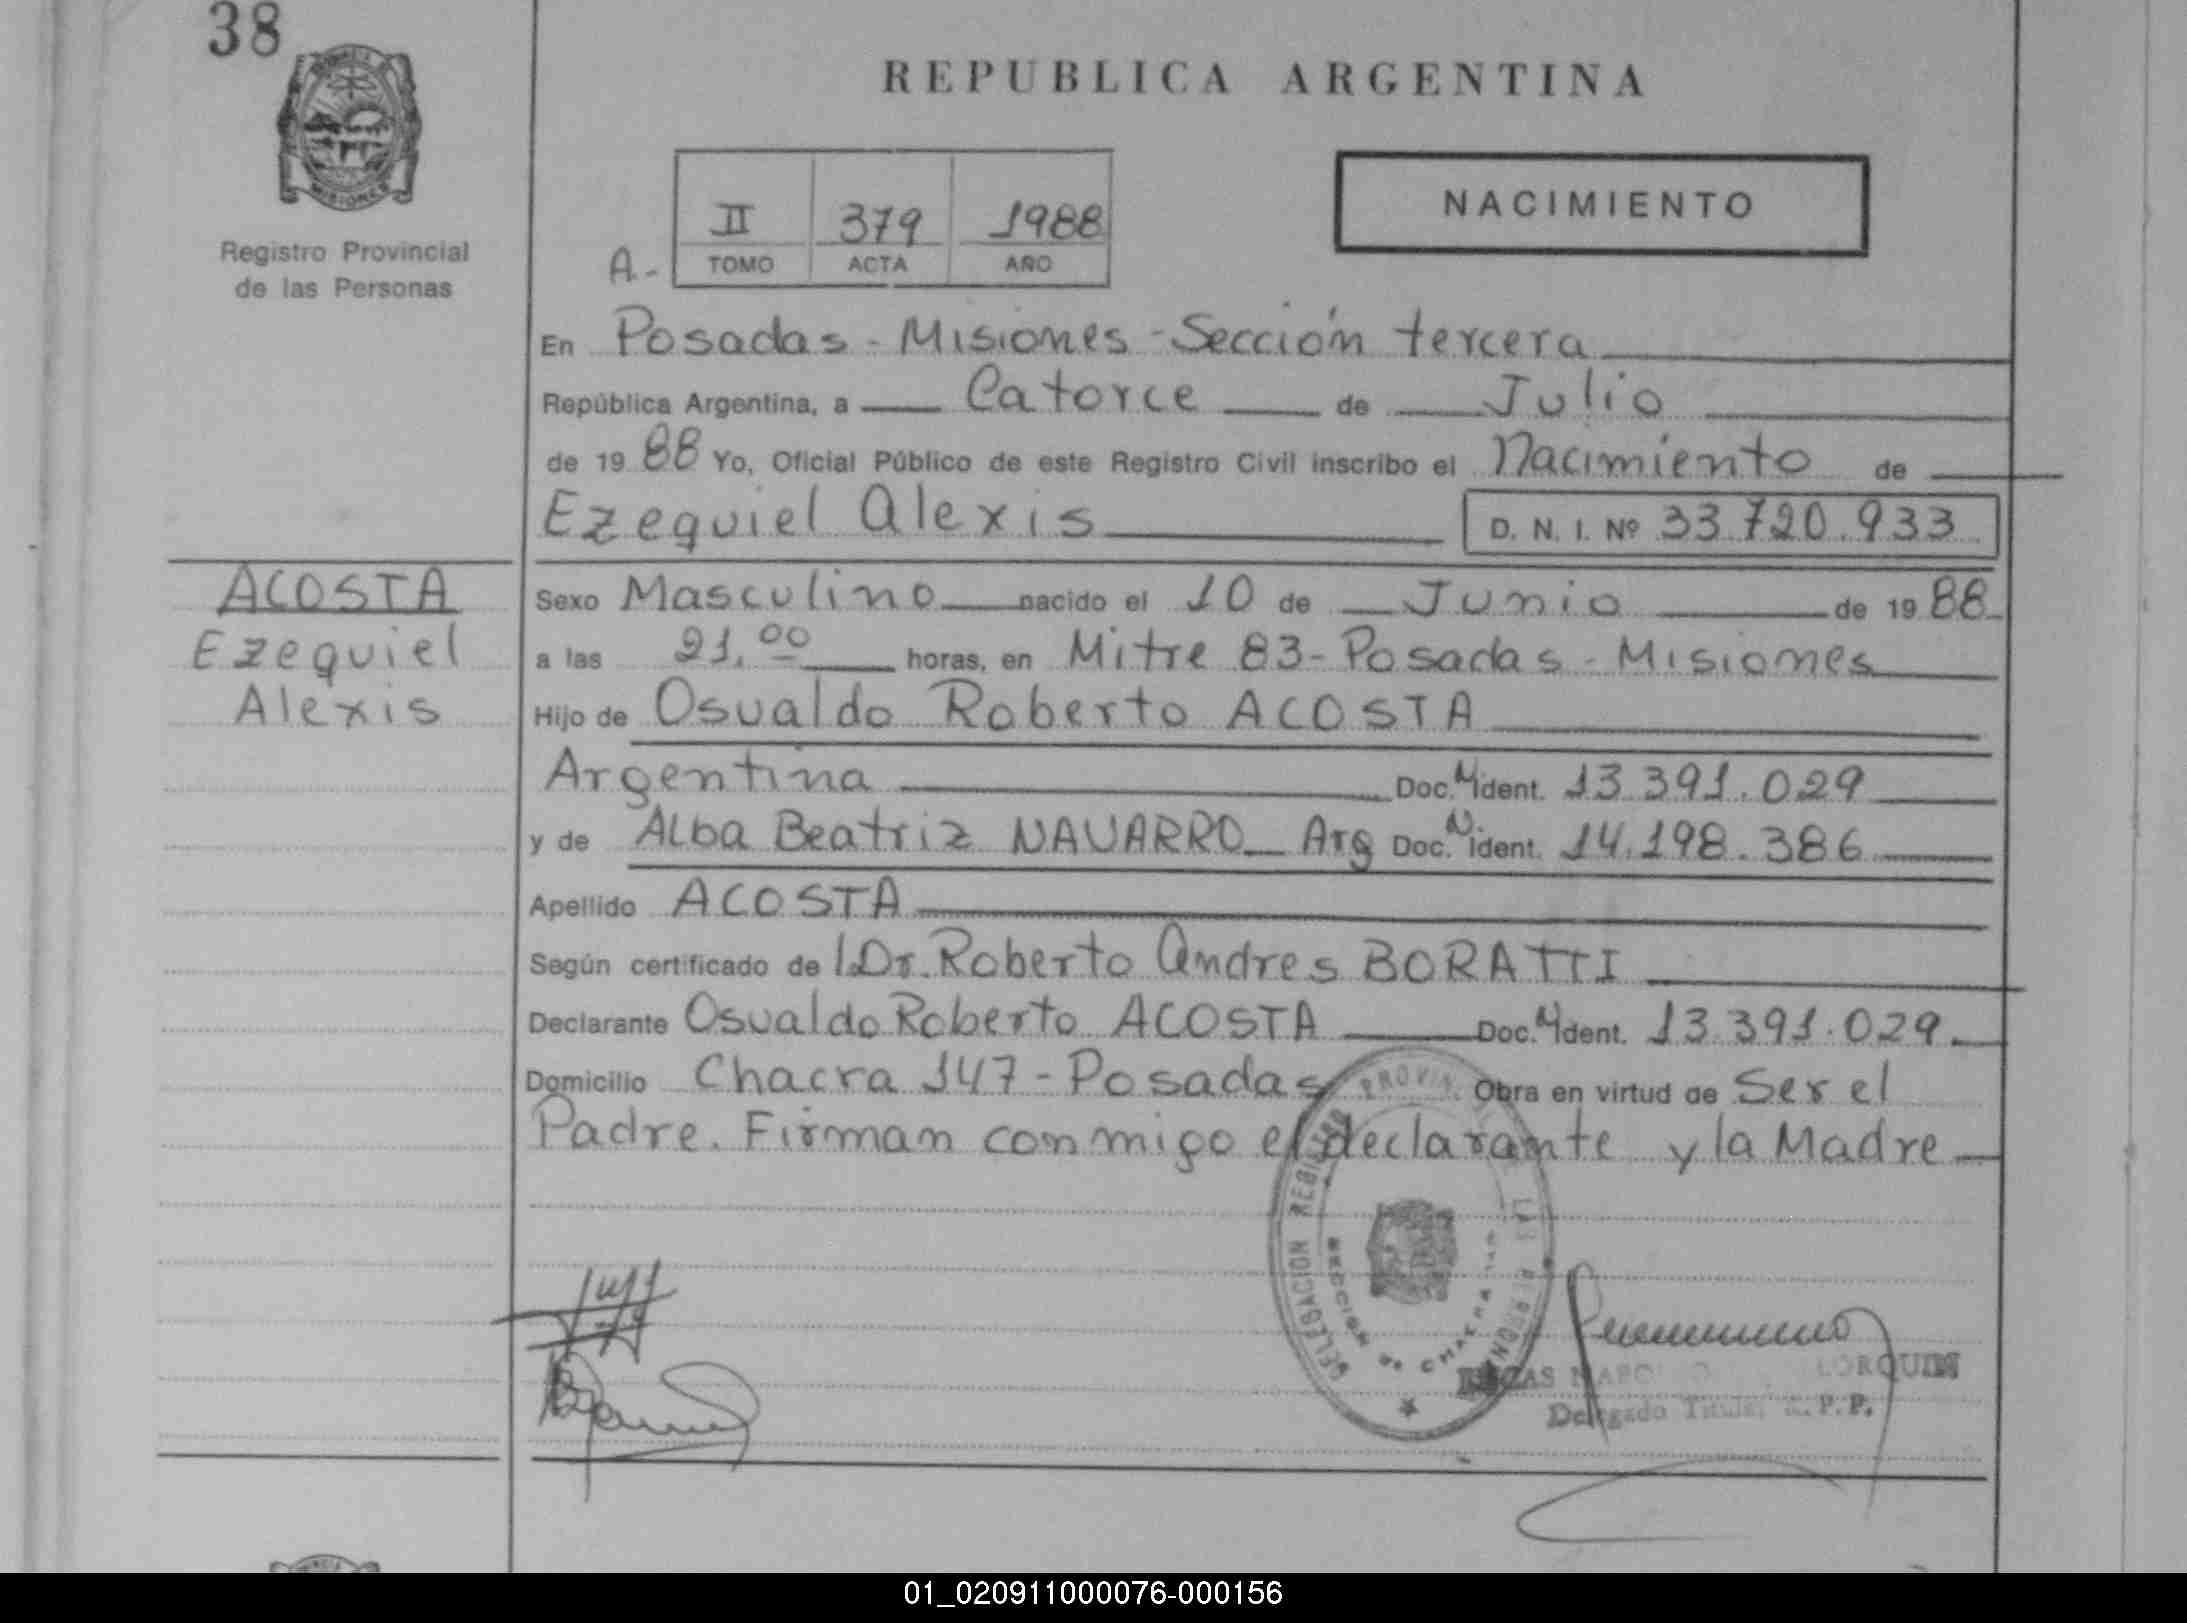 38
REPUBLICA ARGENTINA
NACIMIENTO
Registro Provincial
de las Personas
II 379 1988
A.- TOMO ACTA AÑO
En Posadas - Misiones - Sección tercera
República Argentina, a Catorce de Julio
de 1988 Yo, Oficial Público de este Registro Civil inscribo el Nacimiento de
Ezequiel Alexis D. N. I. Nº 33.720.933
ACOSTA
Ezequiel
Alexis
Sexo Masculino nacido el 10 de Junio de 1988
a las 21,00 horas, en Mitre 83 - Posadas - Misiones
Hijo de Osvaldo Roberto ACOSTA
Argentina Doc. N ident. 13.391.029
y de Alba Beatriz NAVARRO Arg Doc. N ident. 14.198.386
Apellido ACOSTA
Según certificado de Dr. Roberto Andres BORATTI
Declarante Osvaldo Roberto ACOSTA Doc. N ident. 13.391.029
Domicilio Chacra 147 - Posadas Obra en virtud de Ser el
Padre. Firman conmigo el declarante y la Madre
DELEGACION REGISTRO PROVIN. LAS PERSONAS
SECCION
LORQUIN
Delegado Titular R. P. P.
01_020911000076-000156